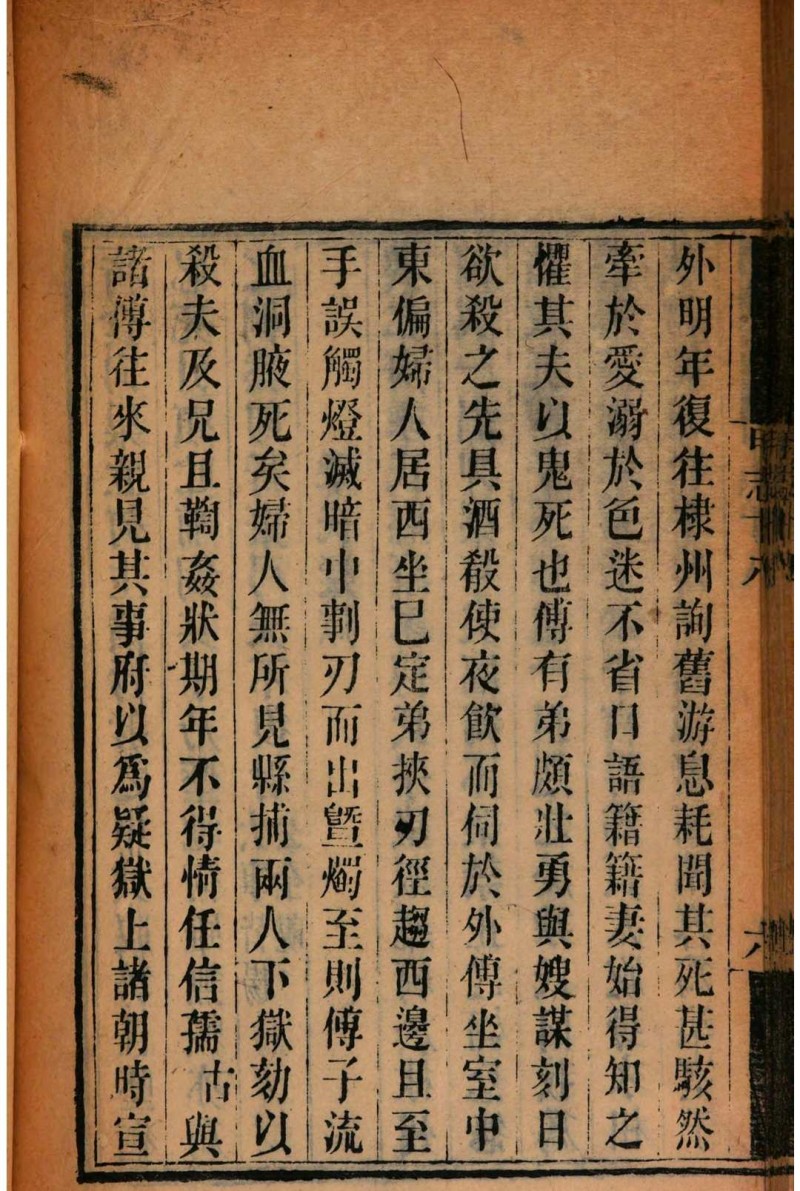 外明年復往棣州詢舊游息耗聞其死甚駭然
牽於愛溺於色迷不省口語籍籍妻始得知之
懼其夫以鬼死也傅有弟頗壯勇與嫂謀刻日
欲殺之先具酒殽使夜飲而伺於外傅坐室中
東偏婦人居西坐已定弟挾刃徑趨西邊且至
手誤觸燈滅暗中剚刃而出暨燭至則傅子流
血洞腋死矣婦人無所見縣捕兩人下獄劾以
殺夫及兄且鞫姦狀期年不得情任信孺古與
諸傅往來親見其事府以為疑獄上諸朝時宣